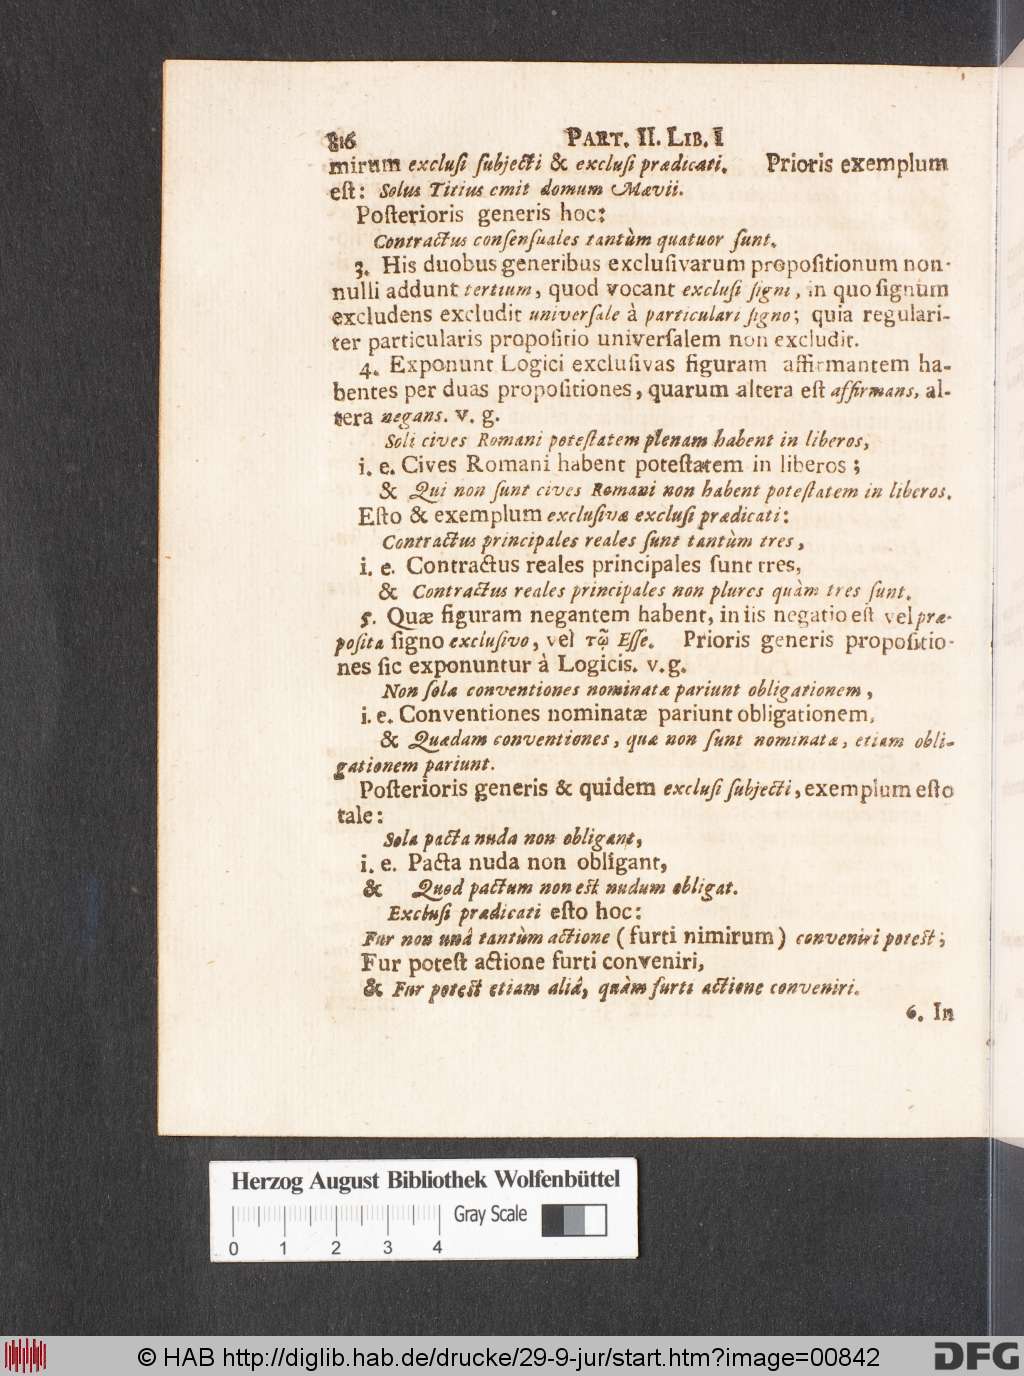 816 PART. II. LIB. I
mirum exclusi subjecti & exclusi prædicati. Prioris exemplum
est: Solus Titius emit domum Mævii.
Posterioris generis hoc:
Contractus consensuales tantùm quatuor sunt.
3. His duobus generibus exclusivarum propositionum non-
nulli addunt tertium, quod vocant exclusi signi, in quo signum
excludens excludit universale à particulari signo; quia regulari-
ter particularis propositio universalem non excludit.
4. Exponunt Logici exclusivas figuram affirmantem ha-
bentes per duas propositiones, quarum altera est affirmans, al-
tera negans. v. g.
Soli cives Romani potestatem plenam habent in liberos,
i. e. Cives Romani habent potestatem in liberos;
& Qui non sunt cives Romani non habent potestatem in liberos.
Esto & exemplum exclusivæ exclusi prædicati:
Contractus principales reales sunt tantùm tres,
i. e. Contractus reales principales sunt tres,
& Contractus reales principales non plures quàm tres sunt.
5. Quæ figuram negantem habent, in iis negatio est vel præ-
posita signo exclusivo, vel τῷ Esse. Prioris generis propositio-
nes sic exponuntur à Logicis. v. g.
Non sola conventiones nominatæ pariunt obligationem,
i. e. Conventiones nominatæ pariunt obligationem,
& Quædam conventiones, quæ non sunt nominatæ, etiam obli-
gationem pariunt.
Posterioris generis & quidem exclusi subjecti, exemplum esto
tale:
Sola pacta nuda non obligant,
i. e. Pacta nuda non obligant,
& Quod pactum non est nudum obligat.
Exclusi prædicati esto hoc:
Fur non unâ tantùm actione (furti nimirum) conveniri potest;
Fur potest actione furti conveniri,
& Fur potest etiam aliâ, quàm furti actione conveniri.
6. In
Herzog August Bibliothek Wolfenbüttel
Gray Scale
0 1 2 3 4
© HAB http://diglib.hab.de/drucke/29-9-jur/start.htm?image=00842
DFG